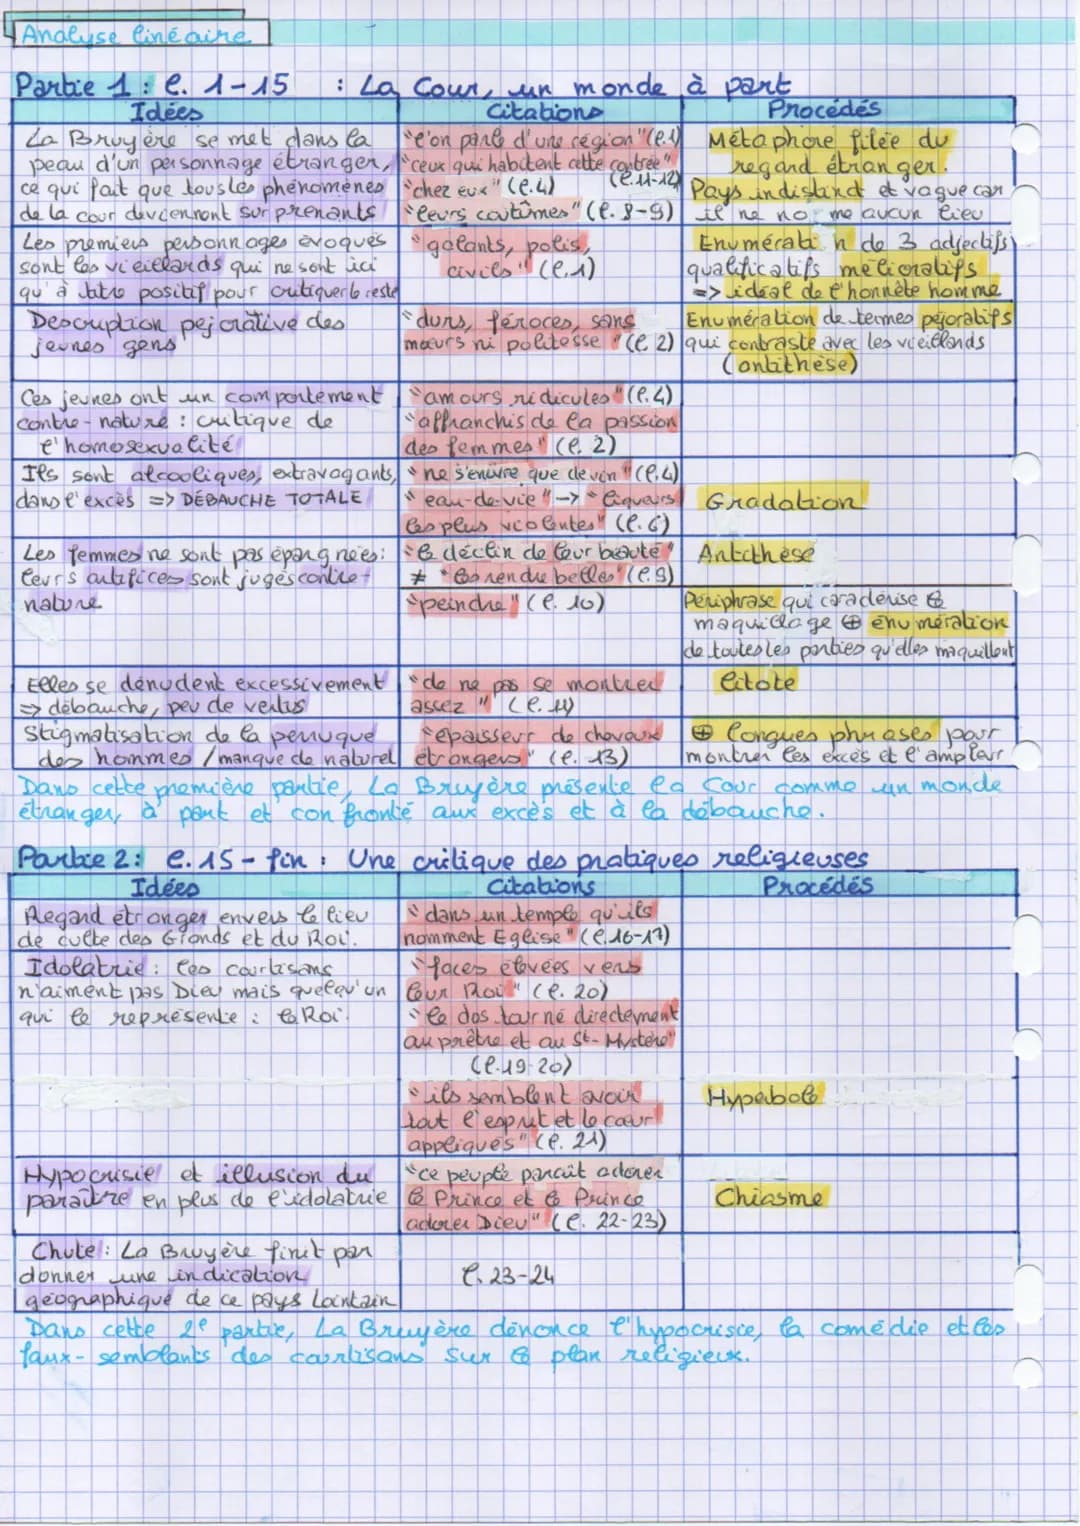 Analyse linéaire
Partie 1 : l. 1-15 : La Cour, un monde à part
Idées Citations Procédés
La Bruyère se met dans la
peau d'un personnage étranger,
ce qui fait que tous les phénomènes
de la cour deviennent surprenants
"l'on parle d'une région" (l.1)
"ceux qui habitent cette contrée"
(l.11-12)
"chez eux" (l.4)
"leurs coutûmes" (l. 8-9)
Métaphore filée du
regard étranger.
Pays indistinct et vague car
il ne nomme aucun lieu
Les premiers personnages évoqués
sont les vieillards qui ne sont ici
qu'à titre positif pour critiquer le reste
"galants, polis,
civils" (l.1)
Enumération de 3 adjectifs
qualificatifs mélioratifs
=> idéal de l'honnête homme
Description péjorative des
jeunes gens
"durs, féroces, sans
mœurs ni politesse" (l. 2)
Enumération de termes péjoratifs
qui contraste avec les vieillards
(antithèse)
Ces jeunes ont un comportement
contre-nature : critique de
l'homosexualité
"amours ridicules" (l.4)
"affranchis de la passion
des femmes" (l. 2)
Ils sont alcooliques, extravagants,
dans l'excès => DÉBAUCHE TOTALE
"ne s'enivre que de vin" (l.4)
"eau-de-vie" -> "liqueurs
les plus violentes" (l. 6)
Gradation
Les femmes ne sont pas épargnées :
leurs artifices sont jugés contre-
nature
"le déclin de leur beauté"
≠ "les rendre belles" (l.9)
Antithèse
"peindre" (l. 10)
Périphrase qui caractérise le
maquillage ⊕ énumération
de toutes les parties qu'elles maquillent
Elles se dénudent excessivement
=> débauche, peu de vertus
"de ne pas se montrer
assez" (l. 11)
Litote
Stigmatisation de la perruque
des hommes / manque de naturel
"épaisseur de cheveux
étrangers" (l. 13)
⊕ longues phrases pour
montrer les excès et l'ampleur
Dans cette première partie, La Bruyère présente la Cour comme un monde
étranger, à part et confronté aux excès et à la débauche.
Partie 2 : l. 15 - fin : Une critique des pratiques religieuses
Idées Citations Procédés
Regard étranger envers le lieu
de culte des Grands et du Roi.
"dans un temple qu'ils
nomment Eglise" (l.16-17)
Idolatrie : les courtisans
n'aiment pas Dieu mais quelqu'un
qui le représente : le Roi.
"faces élevées vers
leur Roi" (l. 20)
"le dos tourné directement
au prêtre et au St-Mystère"
(l.19-20)
"ils semblent avoir
tout l'esprit et le cœur
appliqués" (l. 21)
Hyperbole
Hypocrisie et illusion du
paraître en plus de l'idolatrie
"ce peuple paraît adorer
le Prince et le Prince
adorer Dieu" (l. 22-23)
Chiasme
Chute : La Bruyère finit par
donner une indication
géographique de ce pays lointain
l. 23-24
Dans cette 2e partie, La Bruyère dénonce l'hypocrisie, la comédie et les
faux-semblants des courtisans sur le plan religieux.